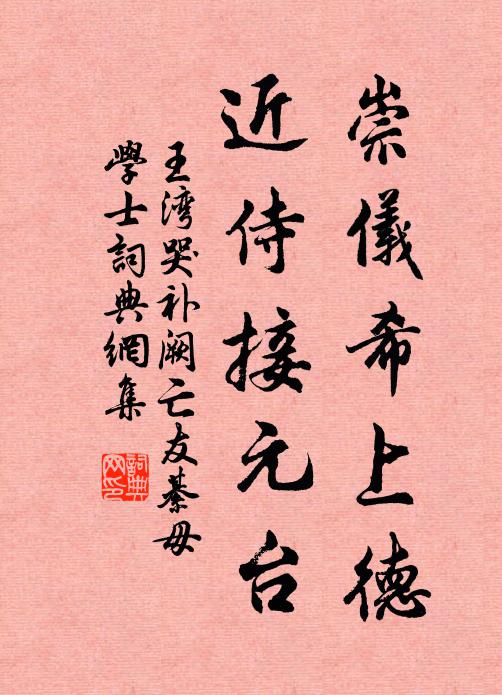 崇儀希上德
近侍接元台
王湾哭补阙亡友綦毋
學士詞典網集
詞典网印